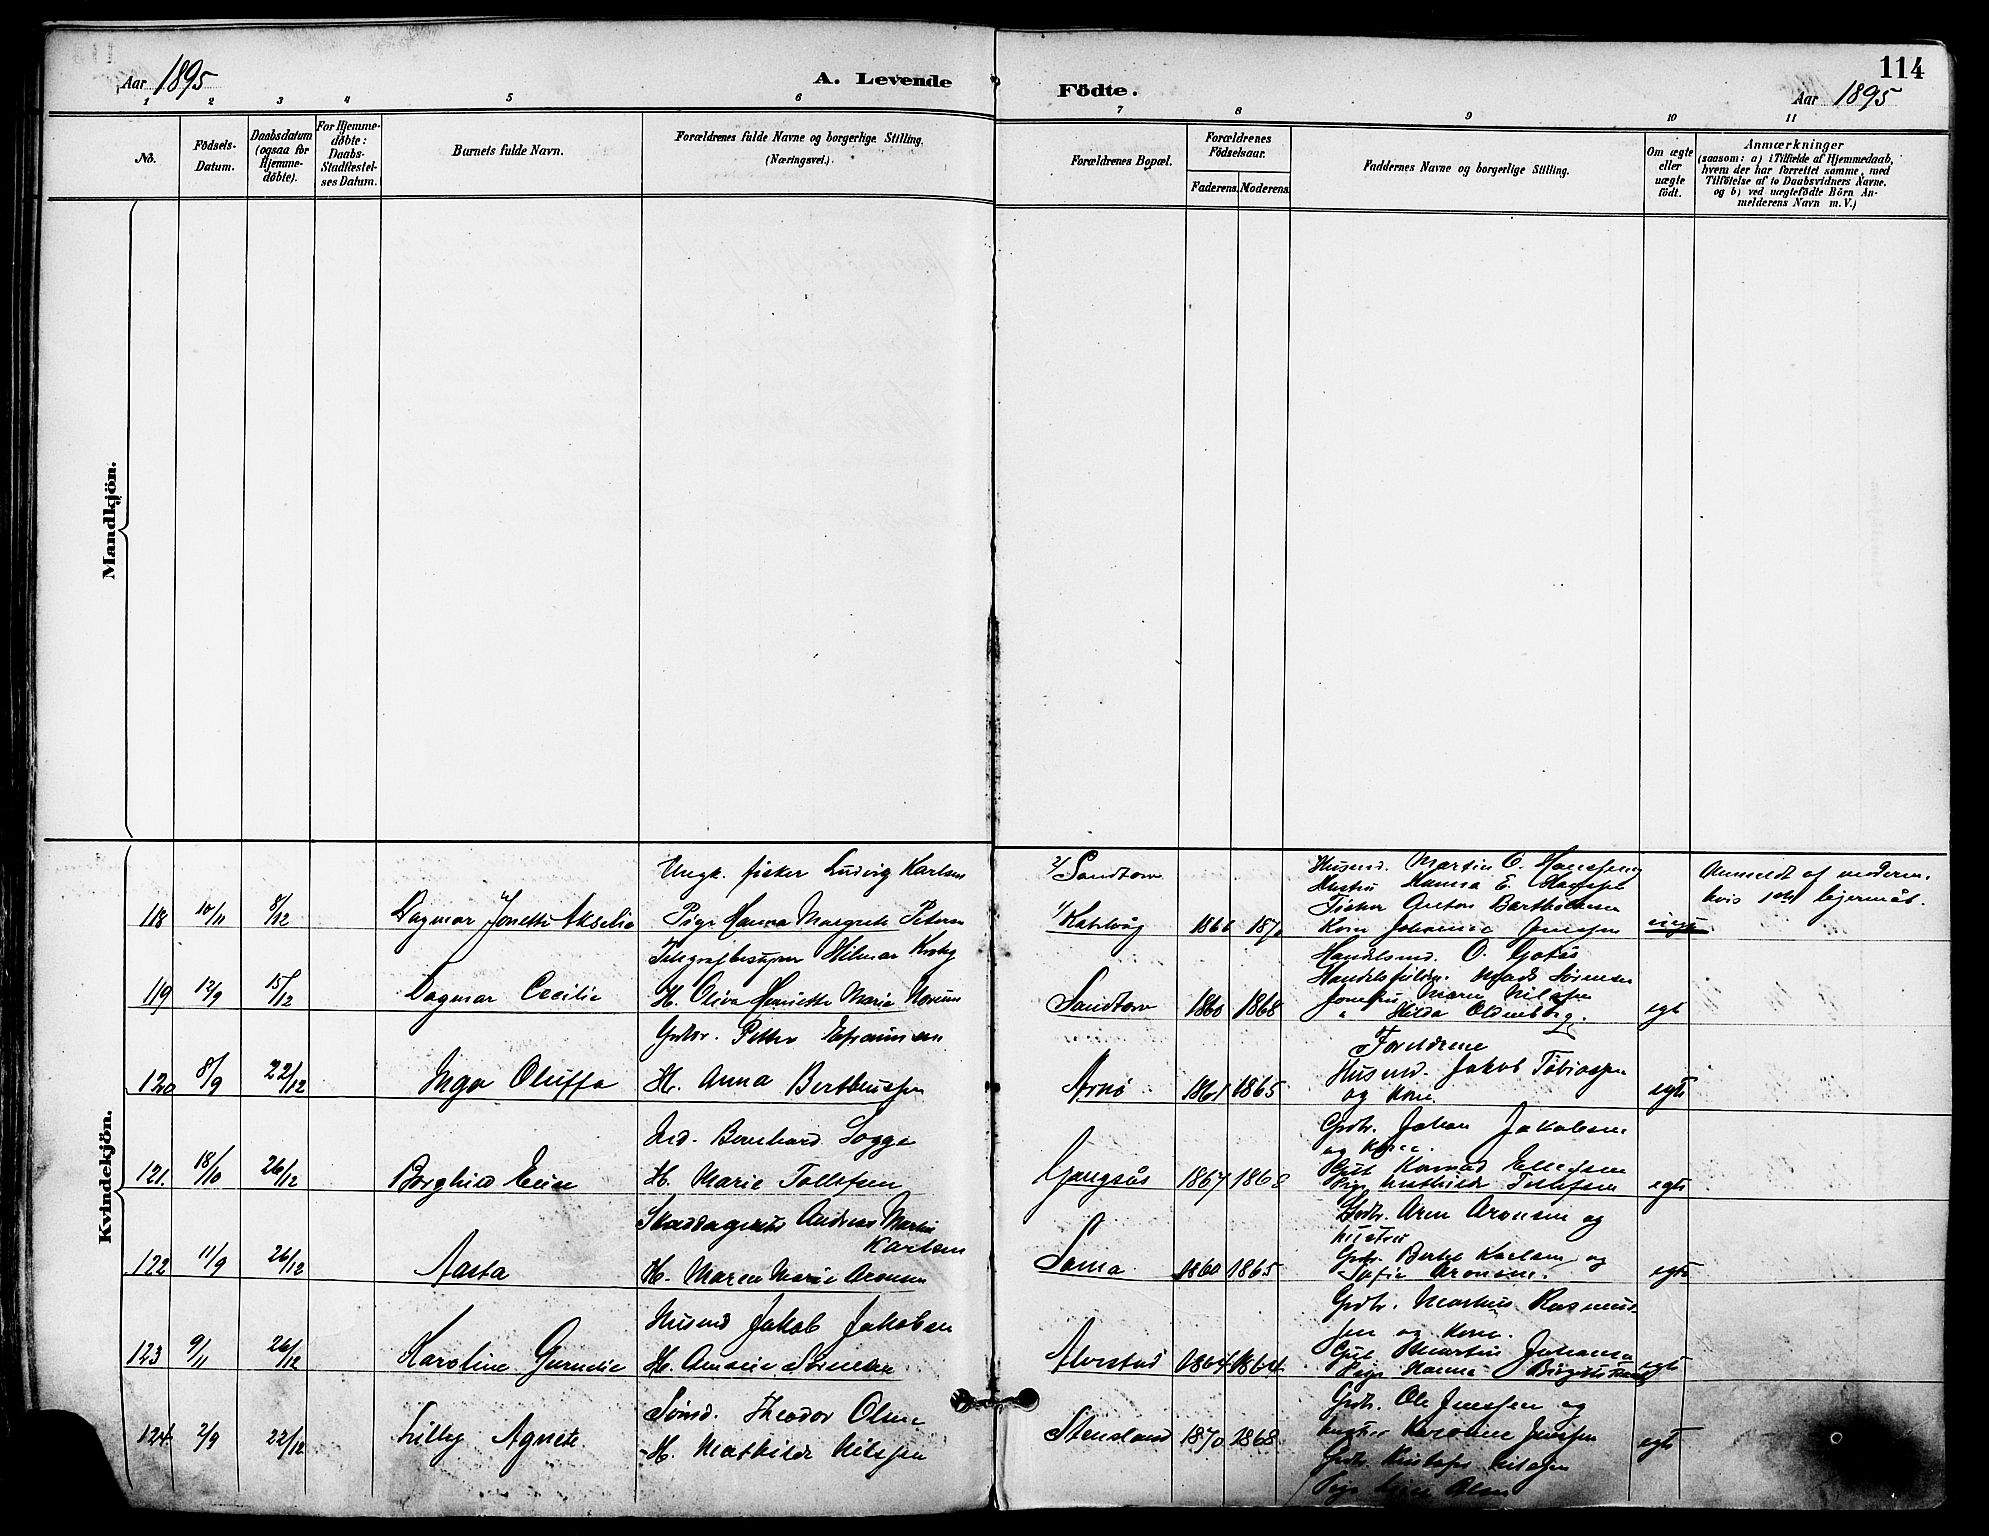 114
Aar 1895
A. Levende
Födte.
Aar 1895
1 2 3 4 5 6 7 8 9 10 11
No.
Födsels-
Datum.
Daabsdatum
(ogsaa for
Hjemme-
döbte).
For Hjemme-
döbte:
Daabs-
Stadfæstel-
ses Datum.
Barnets fulde Navn.
Forældrenes fulde Navne og borgerlige Stilling.
(Næringsvei.)
Forældrenes Bopæl.
Forældrenes
Födselsaar.
Faderens. Moderens.
Faddernes Navne og borgerlige Stilling.
Om ægte
eller
uægte
födt.
Anmærkninger
(saasom: a) i Tilfælde af Hjemmedaab,
hvem der har forrettet samme, med
Tilföielse af to Daabsvidners Navne.
og b) ved uægtefödte Börn An-
melderens Navn m. V.)
Mandkjön.
Kvindekjön.
118 10/11 8/12
Dagmar Jonette Akselia
Ungk. fisker Ludvig Karlsen
Pige Hanna Margrete Petersen
2/ Sandtorv
1/ Katvåg
1866
Husmd. Martin O.
Hustru Hanna E.
Fisker
Kone Johanna Jenssen
Anmeldt af moderen,
hvis 1ste lejermål.
119 12/9 15/12
Dagmar Cecilie
Telegrafbestyrer Hilmar
H. Oliva Henriette Marie
Sandtorv
1860 1868
Handelsmd. O.
Mads Sörensen
Jomfru Marie Nilssen
" Hilda Oldenborg.
egt
120 8/9 22/12
Inga Oluffa
Grdbr. Petter Efraimsen
H. Anna Bertheussen
Arnö
1861 1865
Forældrene
Husmd. Jakob Tobiassen
og Kone
egte
121. 18/10 26/12
Borghild Elise
Ind. Bernhard Sogge
H. Marie Tollefsen
Gangsås
1867 1868
Grdbr. Johan Jakobsen
og Kone.
Gut Konrad Ellefsen
Pige Mathilde Tollefsen
egte
122 11/9 26/12
Aasta
Andreas Martin
Karlsen
H. Maren Marie Aronsen
Sama
1860 1865
Grdbr. Aron Aronsen og
hustru
Grdbr. Bertel Karlsen og
Sofie Aronsen.
egte
123 9/11 26/12
Karoline Gurnelie
Husmd Jakob Jakobsen
H. Amalie
Alvestad
1864 1864
Grdbr. Martin Rasmus-
sen og Kone.
Gut Martin
Pige Hanna
egte
124. 2/9 22/12
Lilly Agnete
Theodor Olsen
H. Mathilde Nilssen
Stensland
1870 1868
Grdbr. Ole Jenssen og
hustru Jenssen
Grdbr.
Pige Olsen
egte